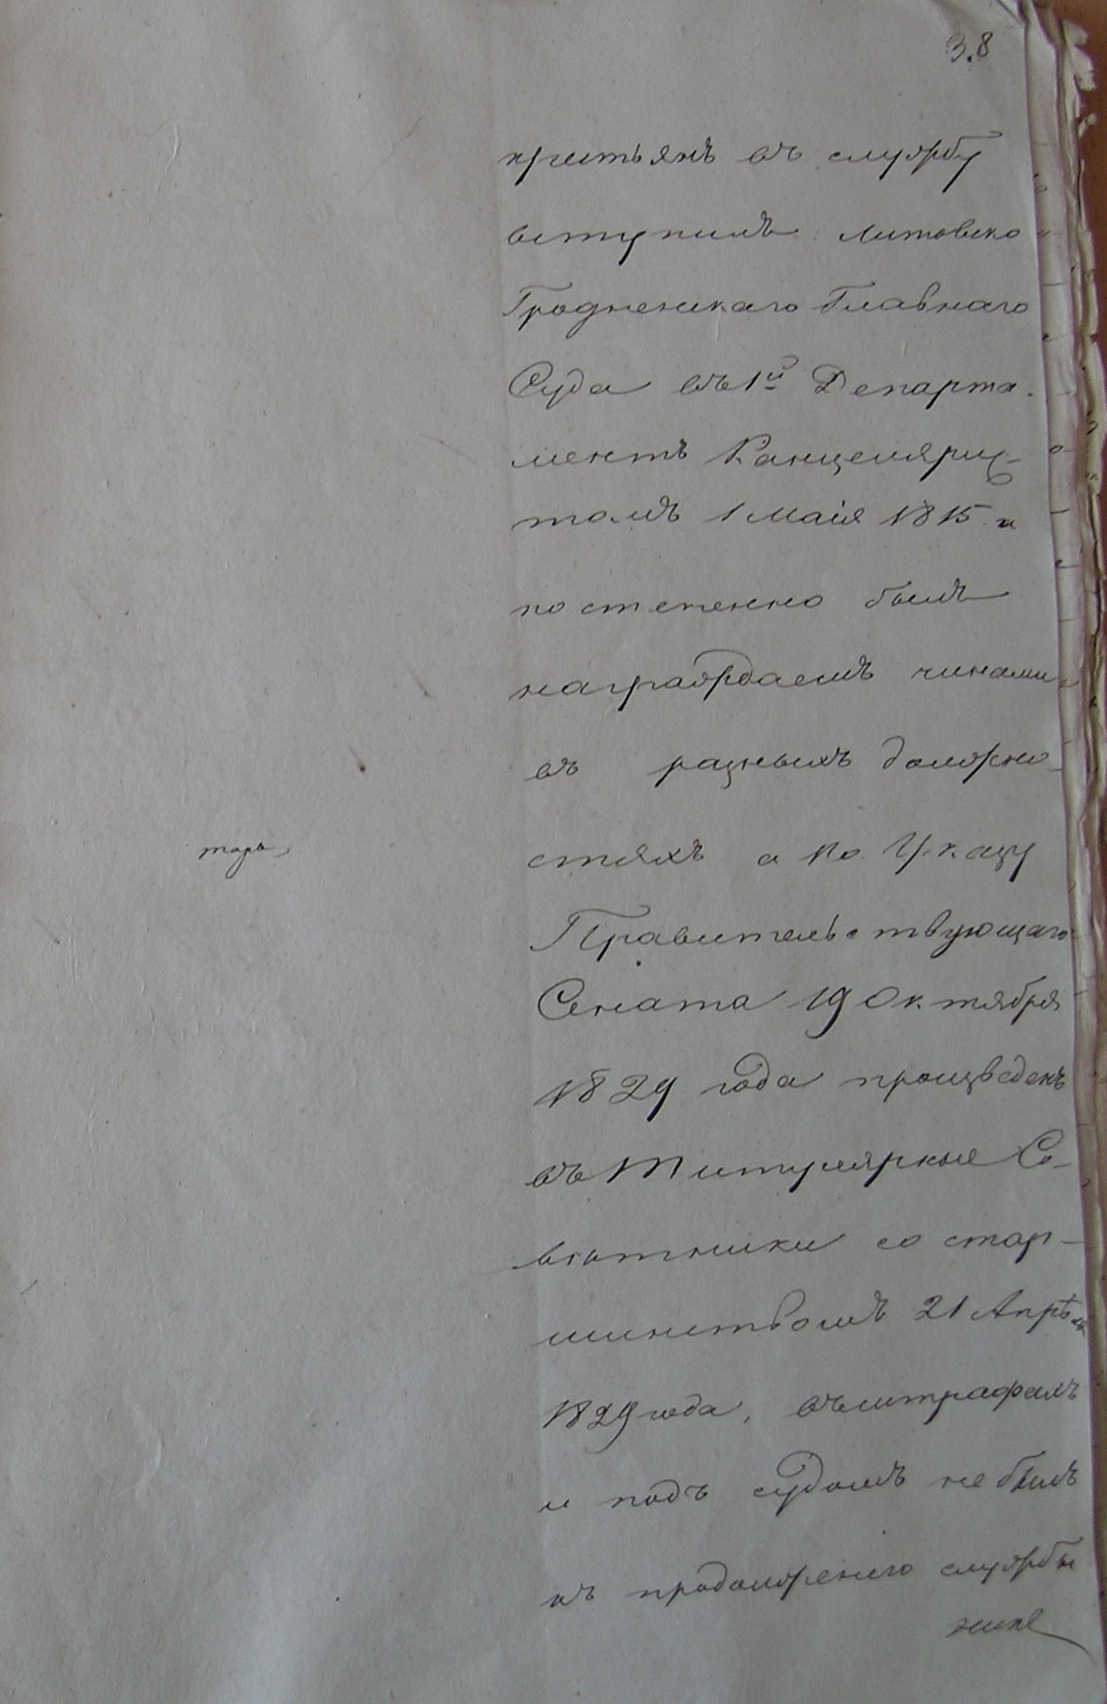 38
крестьянъ въ службу
вступилъ Литовско
Гродненскаго Главнаго
Суда въ 1й Департа
ментъ Канцелярис-
томъ 1 Маія 1815 и
постепенно былъ
награждаемъ чинами
въ разныхъ должно-
стяхъ а по Указу
Правительствующаго
Сената 19 Октября
1829 года произведенъ
въ Титулярные Со-
вѣтники со стар-
шинствомъ 21 Апрѣля
1829 года, въ штрафахъ
и подъ судомъ не былъ
къ продолженію службы